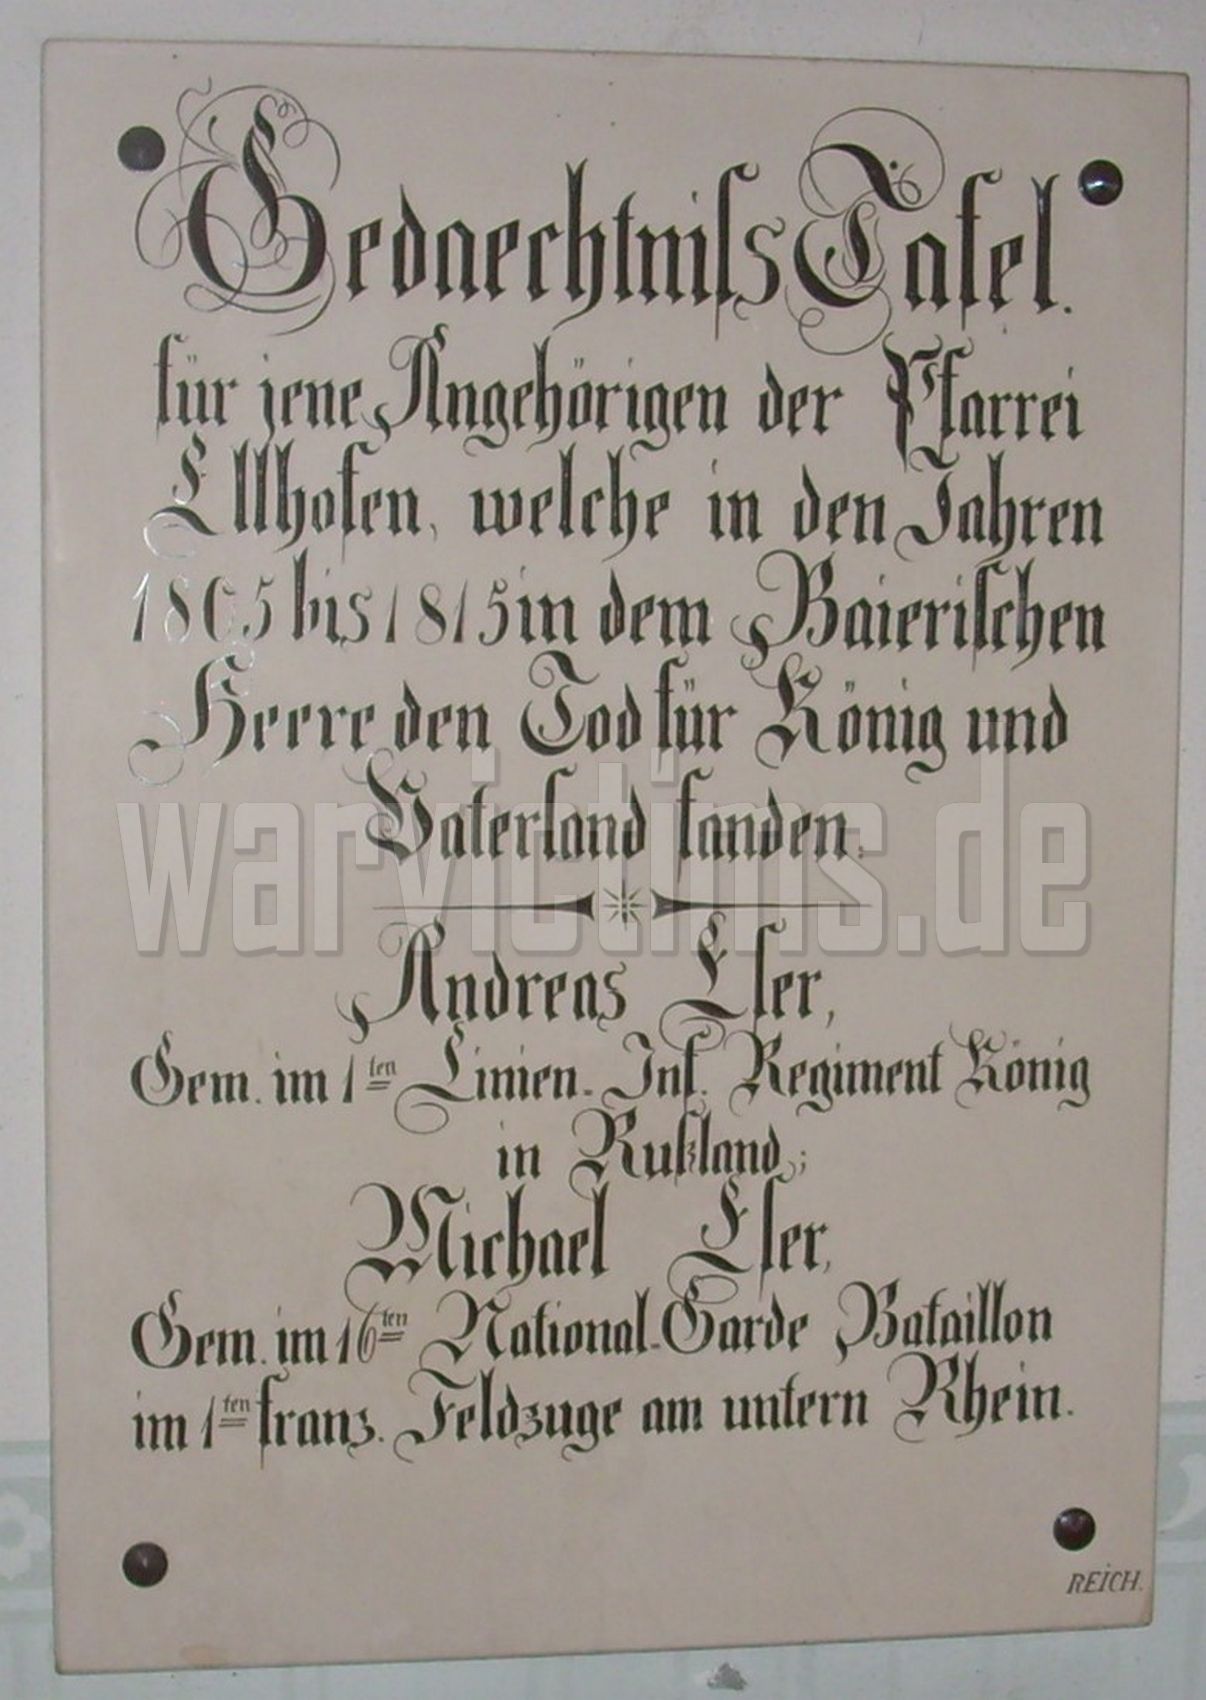 Gedaechtniſs Tafel.
für jene Angehörigen der Pfarrei
Ellhofen, welche in den Jahren
1805 bis 1815 in dem Baieriſchen
Heere den Tod für König und
Vaterland fanden:
warvictims.de
Andreas Eſer,
Gem. im 1ten Linien-Inf. Regiment König
in Rußland;
Michael Eſer,
Gem. im 16ten National-Garde Bataillon
im 1ten franz. Feldzuge am untern Rhein.
REICH.